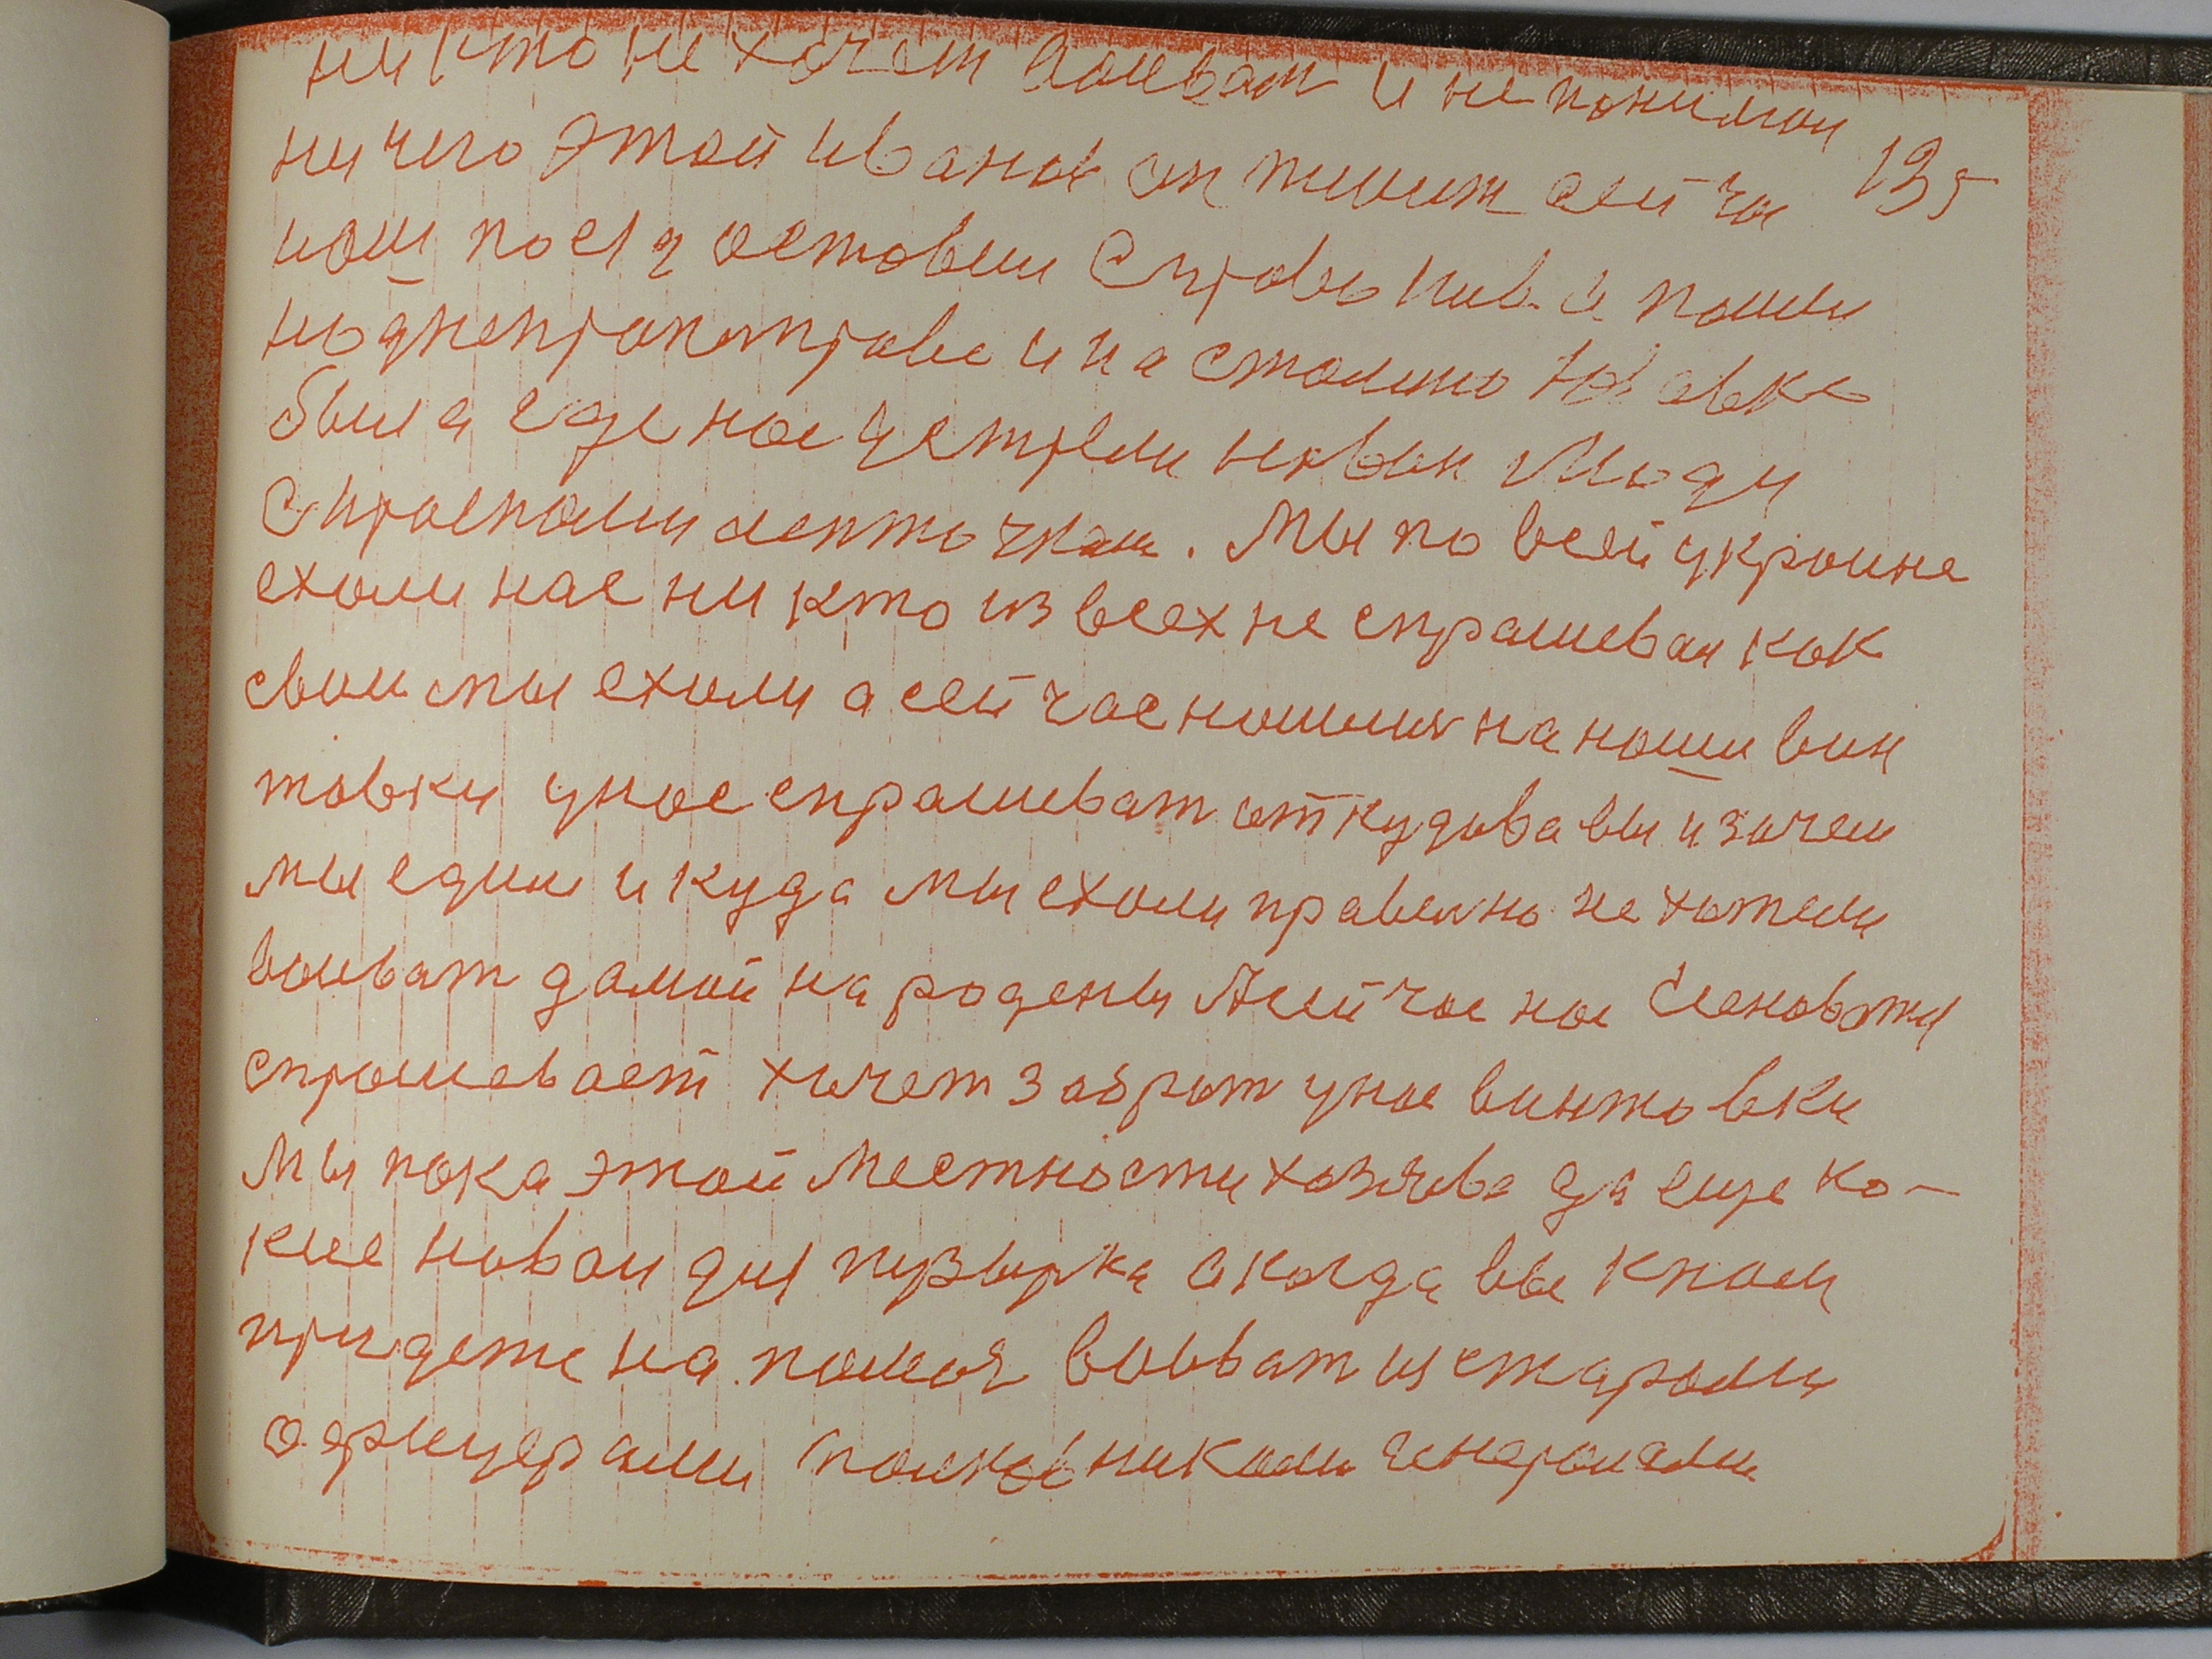 ни кто не хочет воеват и не понимаи
ни чего этой иванов он пишит сей час 135
нош поезд остовили
и на
была где нас устрели новыи люди
с красными ленточками. Мы по всей украине
ехоли нас ни кто из всех не спрашевал как
свои мы ехоли а сей час ношии на наши вин
товки у нас спрашеват откудова вы и зочем
мы едим и куда мы ехоли правелно не хотели
воеват домой на родену А сей час нас Сеновотки
спрошевает хочет забрат у нас винтовки
Мы пока этой местности хозяева да еще ко-
кие новои для пузырка а когда вы к нам
придете на помоч воеват и старыми
офицерами полковниками генералами